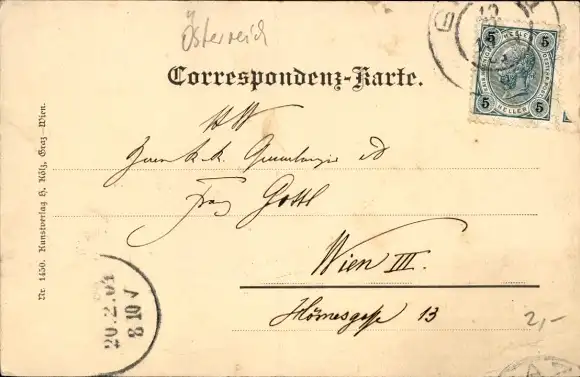 Österreich
Correspondenz-Karte.
5 HELLER 5
5 HELLER 5
Herrn k. k.
Franz Gottl
Wien III.
Hörnesgasse 13
2,-
20.2.01
8 10 V
Nr. 1450. Kunstverlag H. Kölz, Graz—Wien.